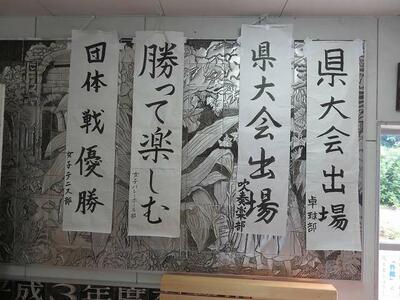 県大会出場
卓球部
県大会出場
吹奏楽部
勝って楽しむ
女子バレーボール部
団体戦優勝
女子テニス部
平成3年度